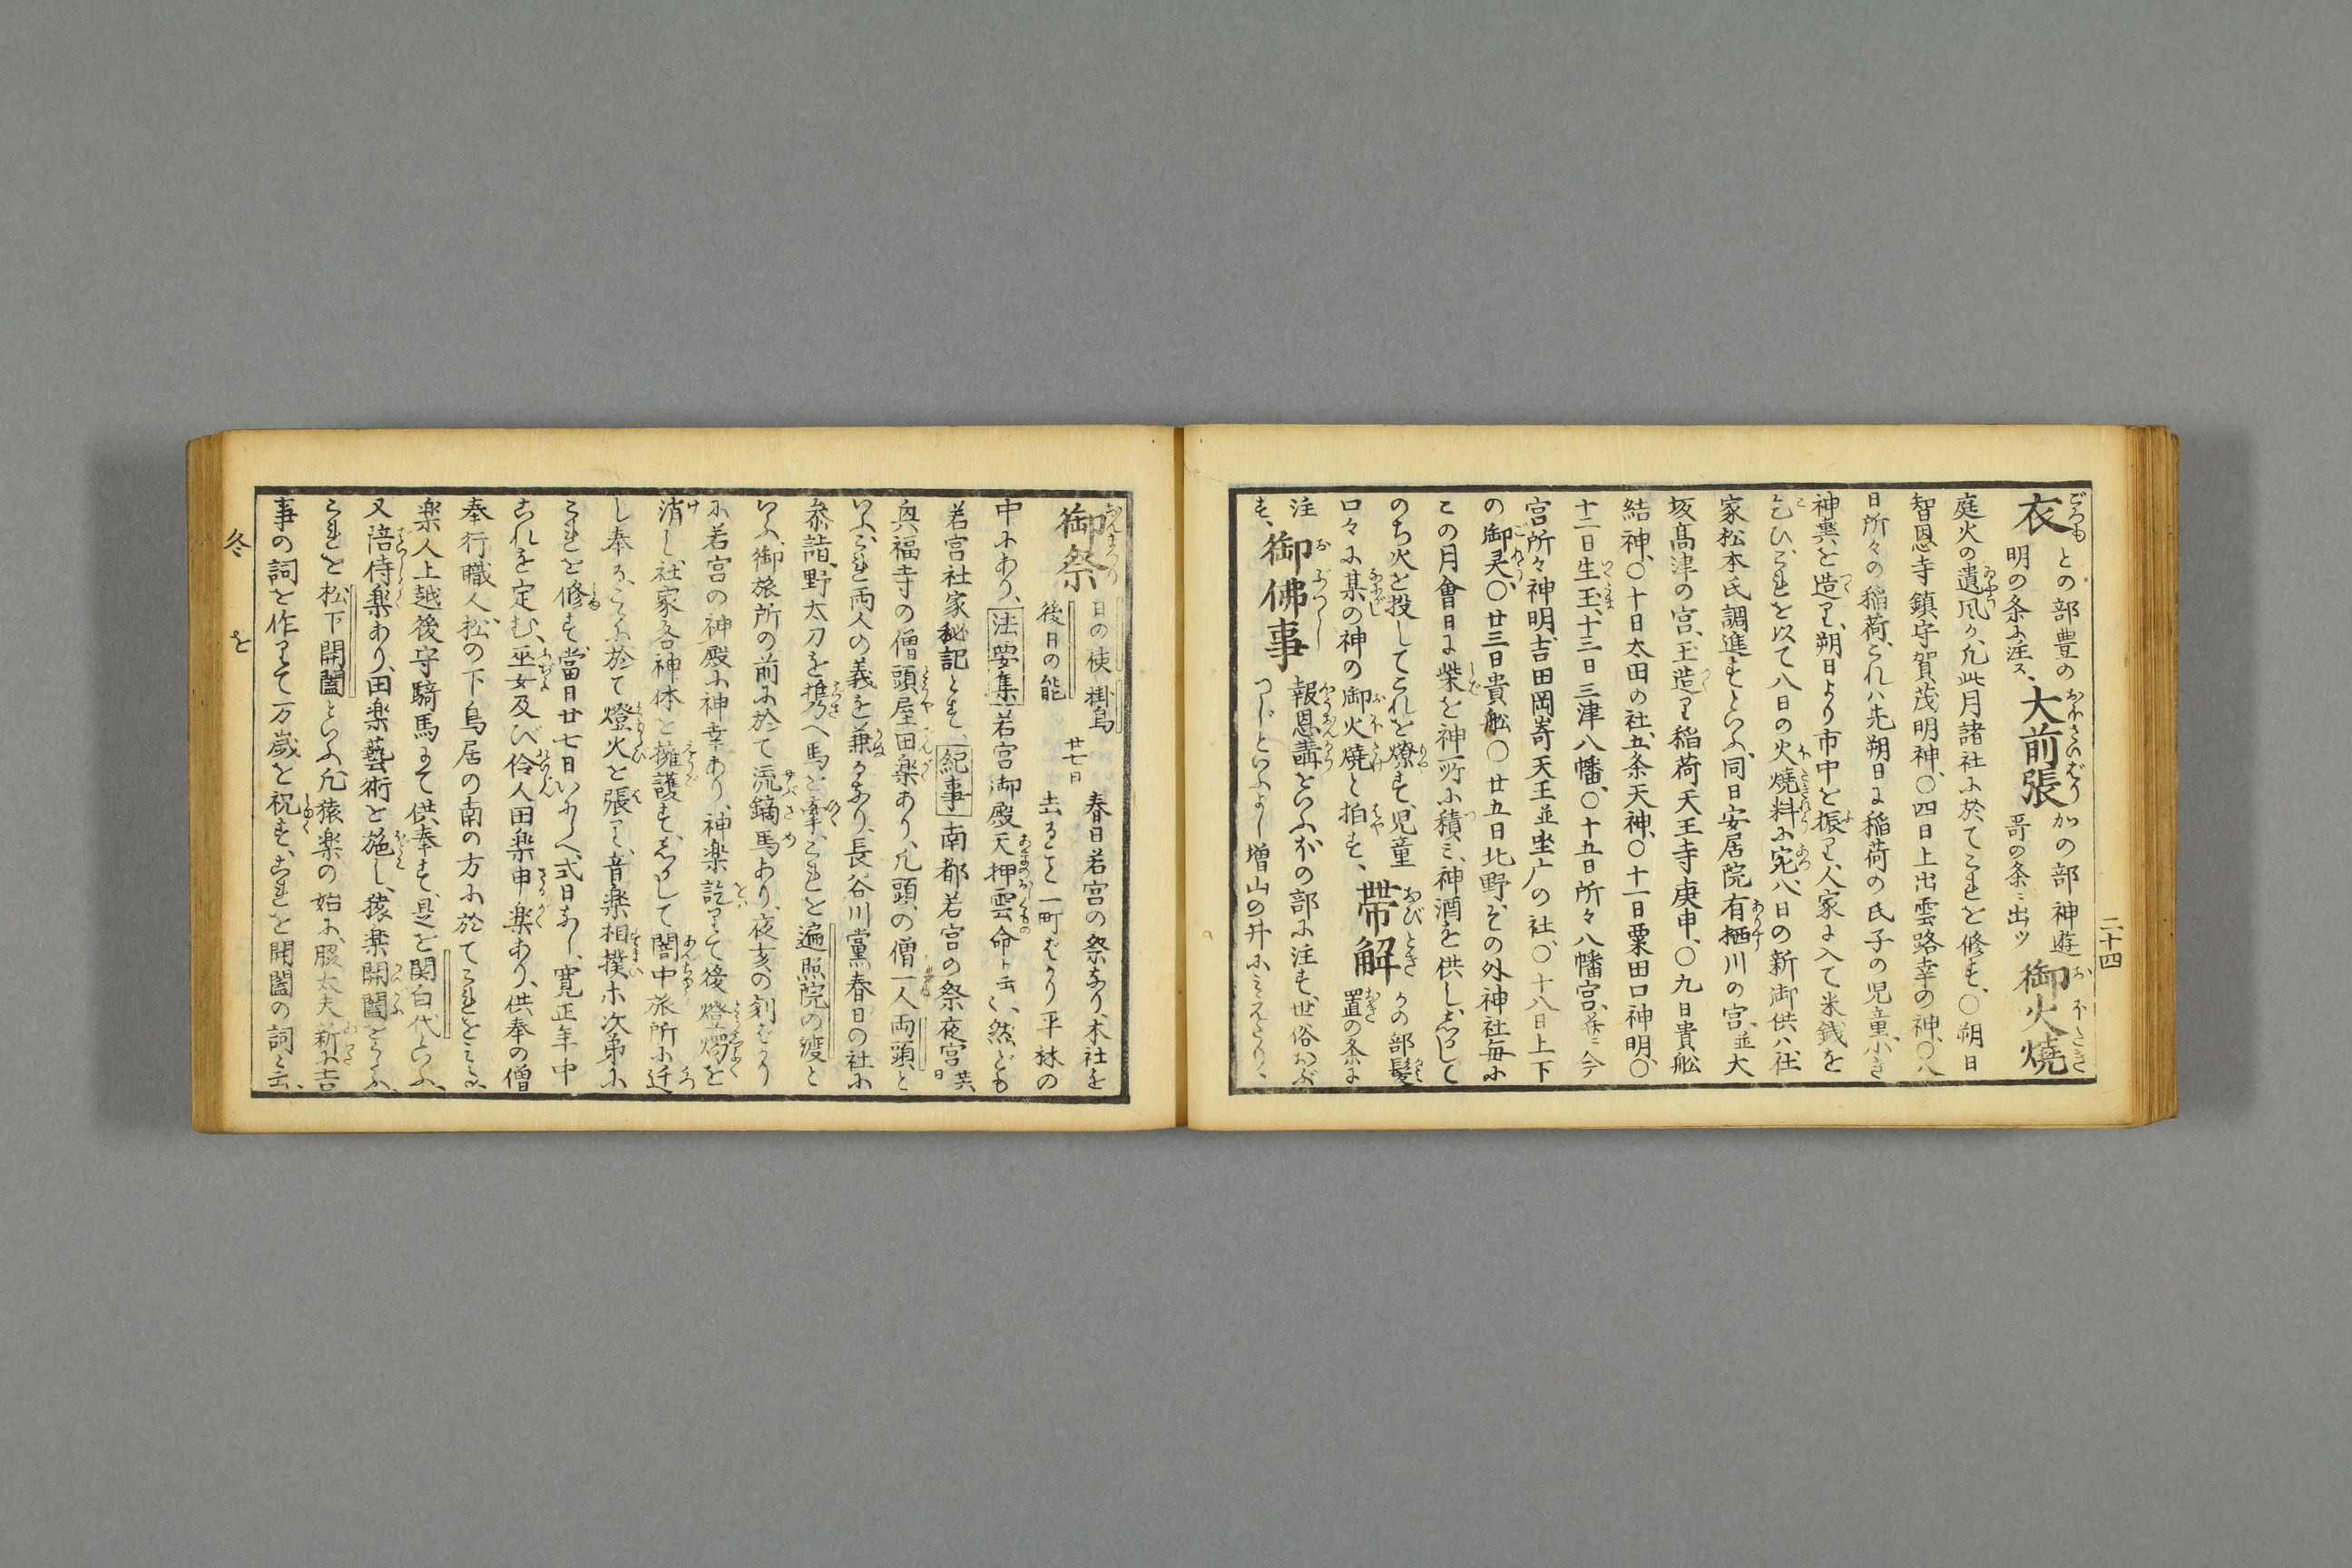 二十四
衣 との部豊の
明の条に注ス、
大前張 かの部神遊
哥の条ニ出ツ
御火焼
庭火の遺風か、凡此月諸社に於てこれを修す、〇朔日
智恩寺鎮守賀茂明神、〇四日上出雲路幸の神、〇八
日所々の稲荷、これハ先朔日より稲荷の氏子の児童、小き
神輿を造り、朔日より市中を振り、人家に入て米銭を
乞ひ、これを以て八日の火焼料に宛、八日の新御供ハ社
家松本氏調進すといふ、同日安居院有栖川の宮、並大
坂髙津の宮、玉造り稲荷天王寺庚申、〇九日貴舩
結神、〇十日太田の社、五条天神、〇十一日粟田口神明、〇
十二日生玉、十三日三津八幡、〇十五日所々八幡宮、並ニ今
宮所々神明、吉田岡嵜天王並坐广の社、〇十八日上下
の御灵、〇廿三日貴舩、〇廿五日北野、その外神社毎に
この月會日に柴を神前に積ミ、神酒を供し、しかして
のち火を投してこれを燎す、児童
口々に某の神の御火焼と拍す、
帯解 かの部髪
置の条に
注す、
御佛事 報恩講をいふ、ほの部に注す、世俗おぶ
つじといふよし増山の井にみえたり、
御祭 日の使 掛鳥
後日の能
廿七日
春日若宮の祭なり、本社を
去ること一町ばかり平林の
中にあり、法要集若宮御殿天押雲命ト云々、然ども
若宮社家秘記とす、紀事南都若宮の祭夜宮廿六日
興福寺の僧頭屋田楽あり、凡頭の僧一人両頭と
いふ、これ両人の義を兼るなり、長谷川黨春日の社に
参詣、野太刀を携へ馬を牽、これを遍照院の渡と
いふ、御旅所の前に於て流鏑馬あり、夜亥の刻ばかり
に若宮の神殿に神幸あり、神楽訖りて後燈燭を
消し、社家各神体を擁護す、しかして闇中旅所に迁
し奉る、こゝに於て燈火を張り、音楽相撲ホ次第に
これを修す、當日廿七日いにしへ式日なし、寛正年中
これを定む、巫女及び伶人田楽申楽あり、供奉の僧
奉行職人、松の下鳥居の南の方に於てこれをミる、
楽人上越後守騎馬にて供奉す、是を関白代といふ、
又陪侍楽あり、田楽藝術を施し、猿楽開闔をうたふ、
これを松下開闔といふ、凡猿楽の始に、脇太夫新に吉
事の詞を作りて万歳を祝す、これを開闔の詞と云、
冬 を